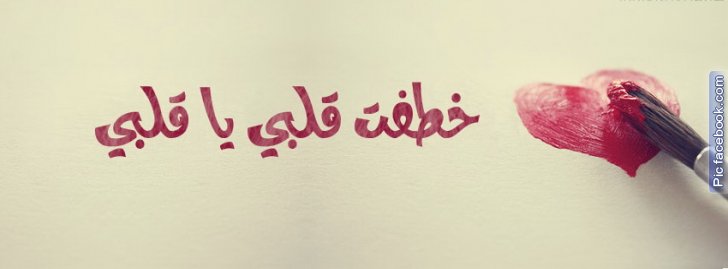 خطفت قلبي يا قلبي
Pic facebook.com